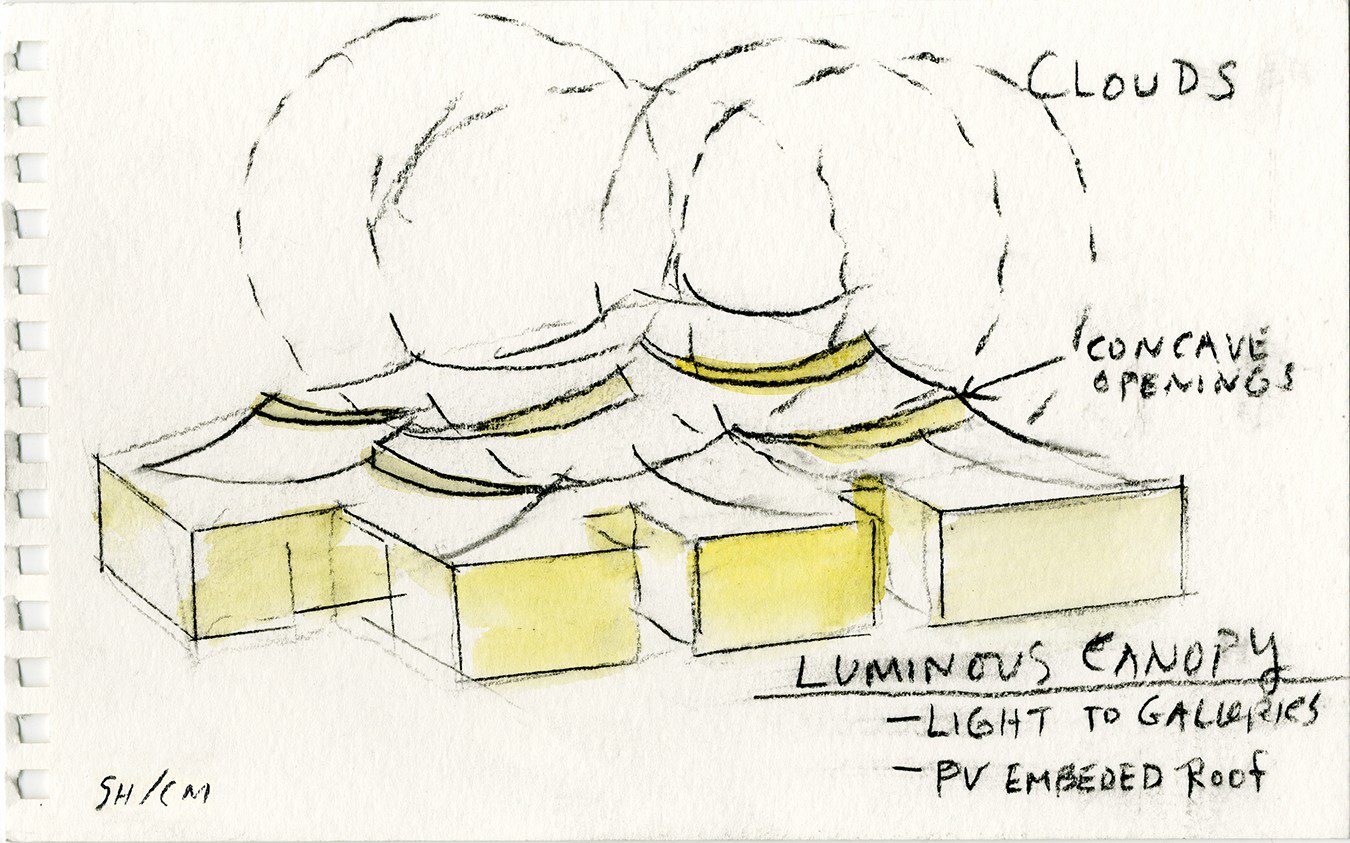 CLOUDS
CONCAVE
OPENINGS
LUMINOUS CANOPY
-LIGHT TO GALLERIES
-PV EMBEDED ROOF
SH/CM